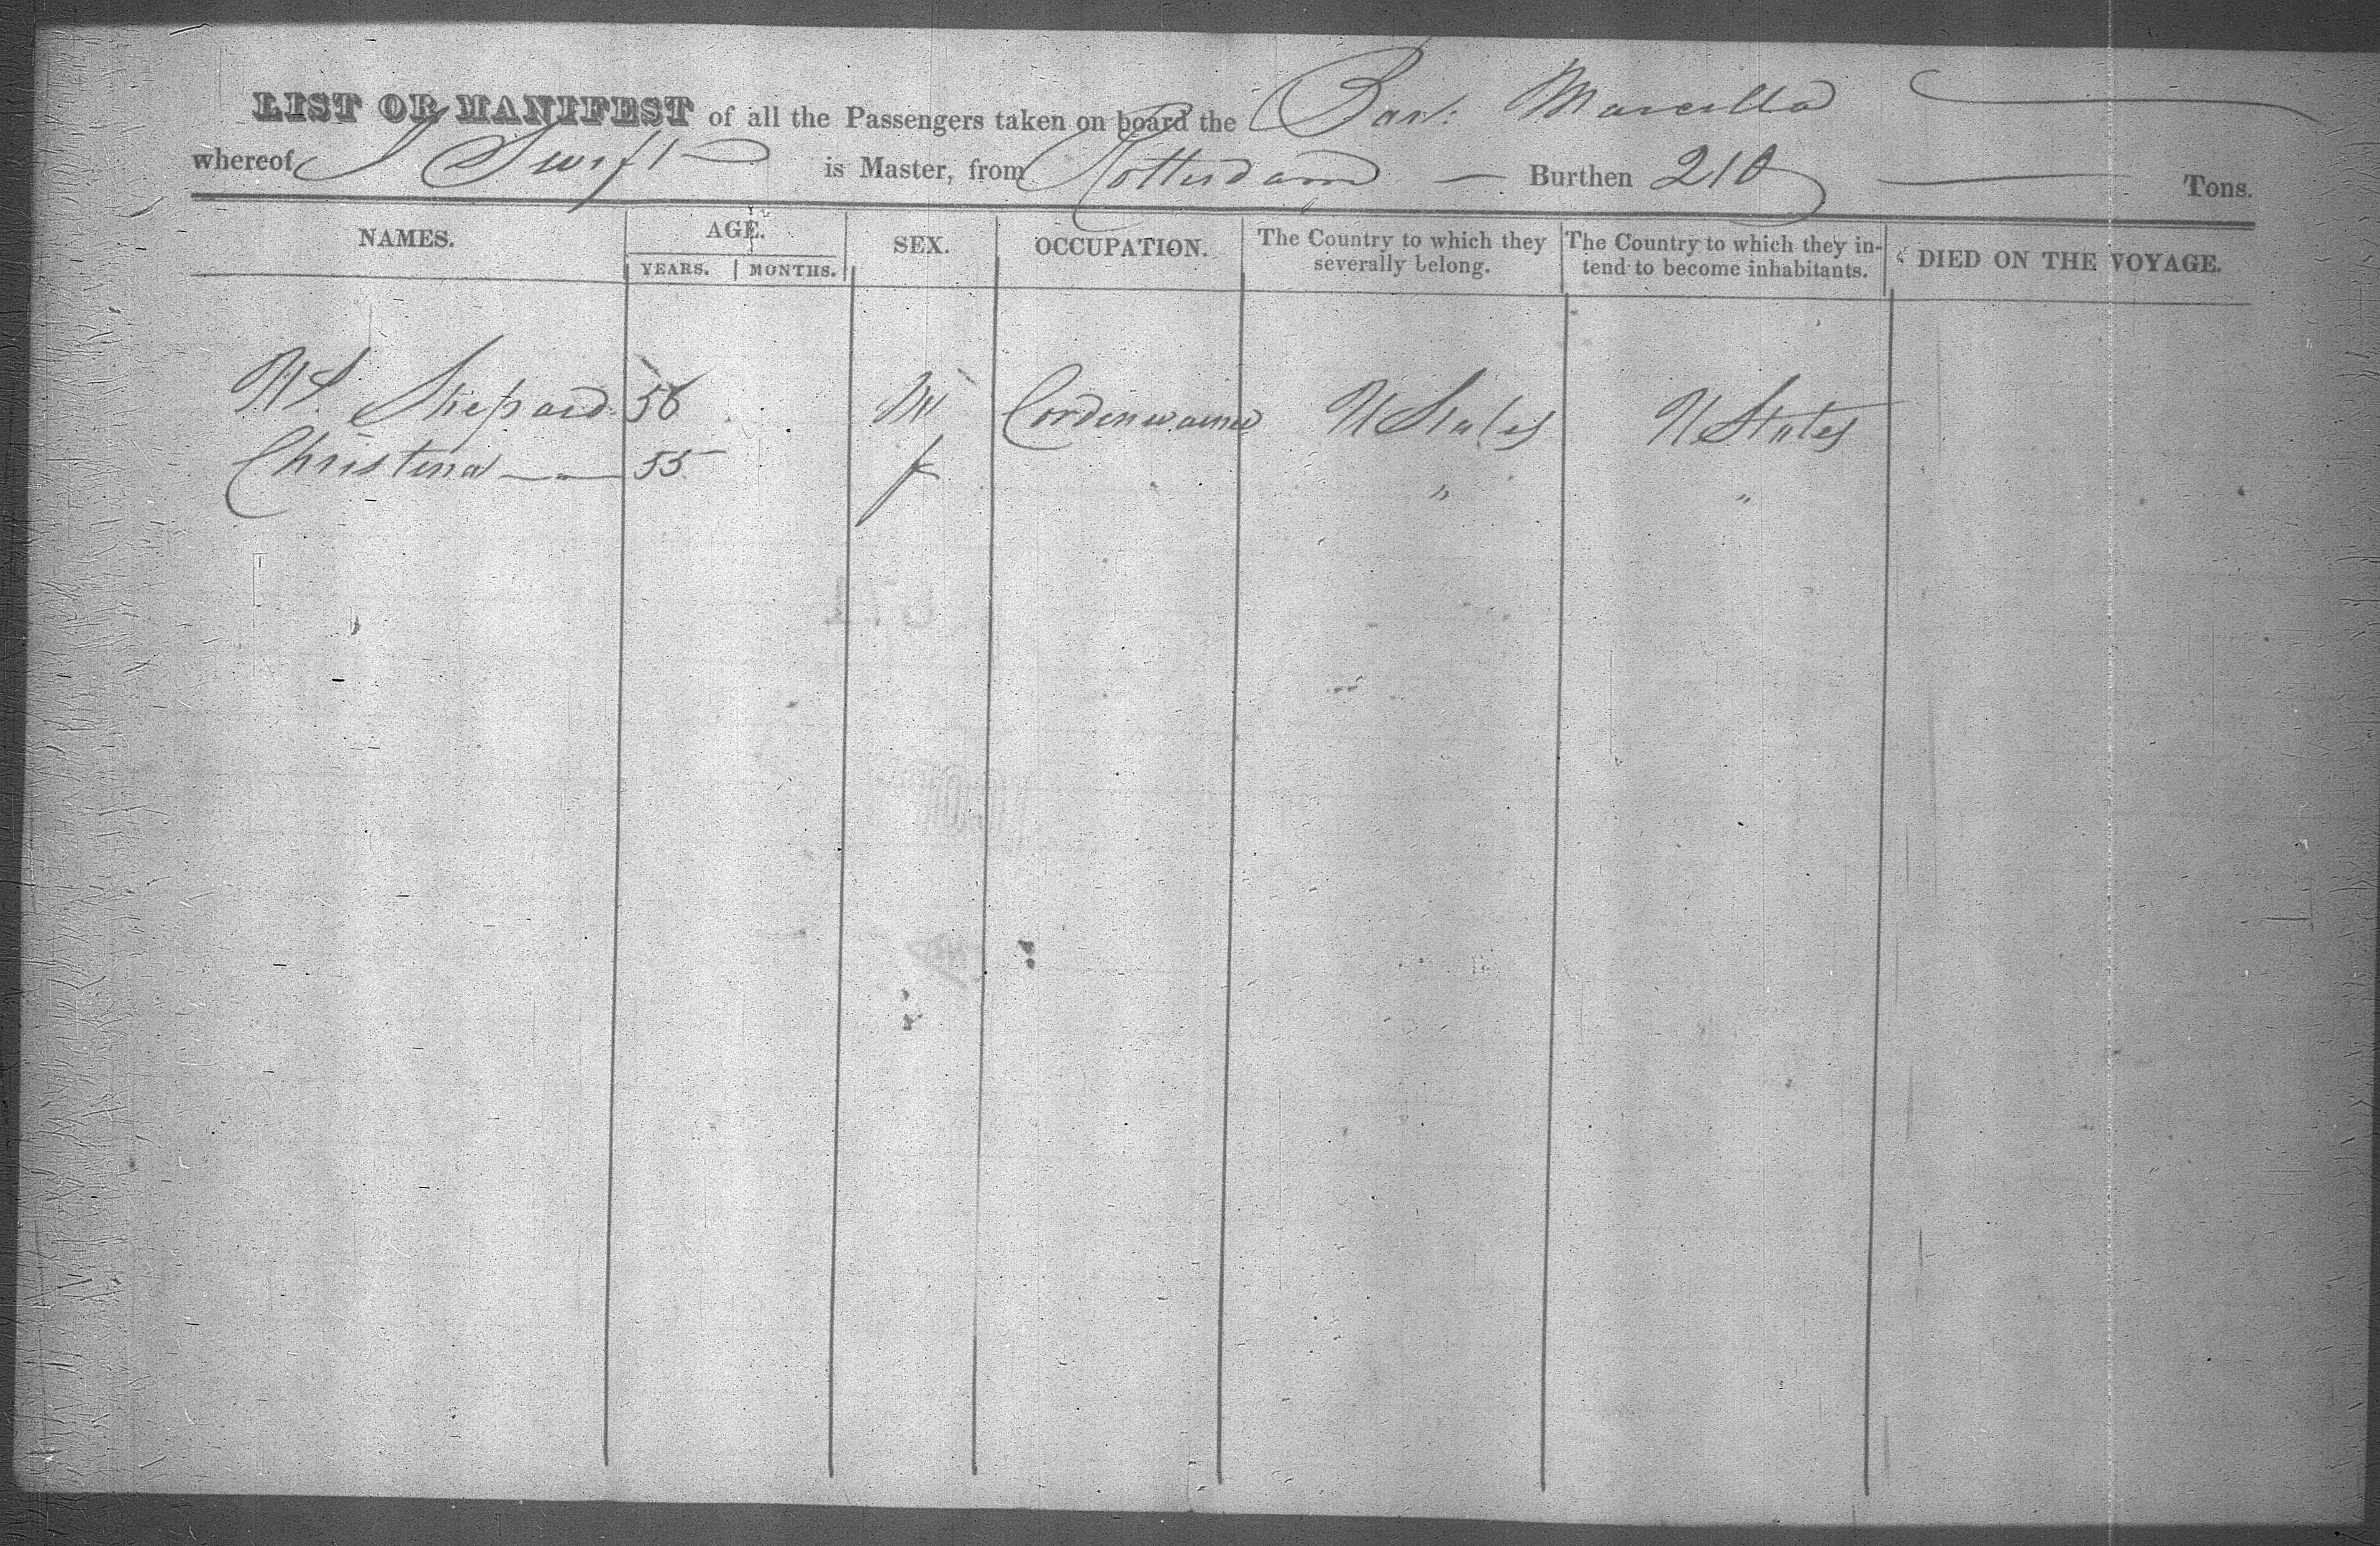 LIST OR MANIFEST of all the Passengers taken on board the Bark Marcella
whereof J Swift is Master, from Rotterdam — Burthen 210 — Tons.
NAMES. AGE. SEX. OCCUPATION. The Country to which they severally belong. The Country to which they intend to become inhabitants. DIED ON THE VOYAGE.
YEARS. MONTHS.
Shepard 56 M Cordenwainer U States U States
Christina — 55 f " "